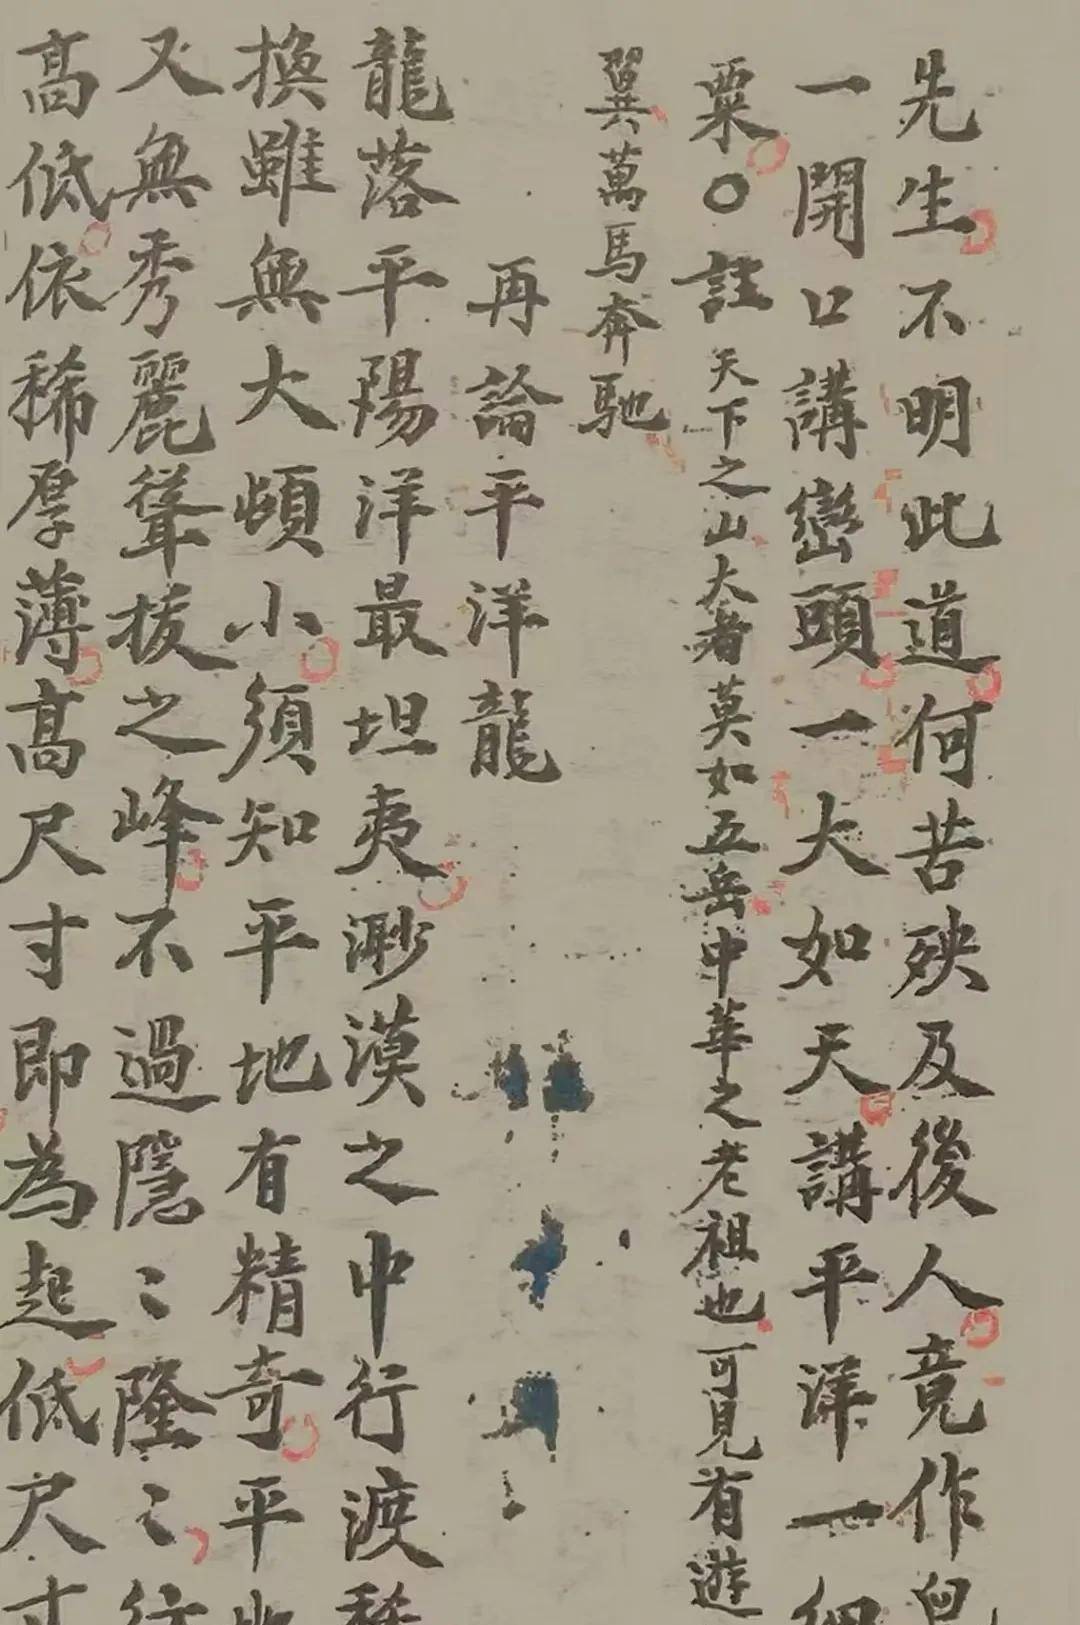 先生不明此道何苦殃及後人竟作
一開口講巒頭一大如天講平洋一
粟〇註天下之山大者莫如五岳中華之老祖也可見有遊
翼萬馬奔馳
再論平洋龍
龍落平陽洋最坦夷渺漠之中行渡
換雖無大頓小須知平地有精奇平
又無秀麗聳拔之峰不過隱〻隆〻
高低依稀厚薄高尺寸即為起低尺寸